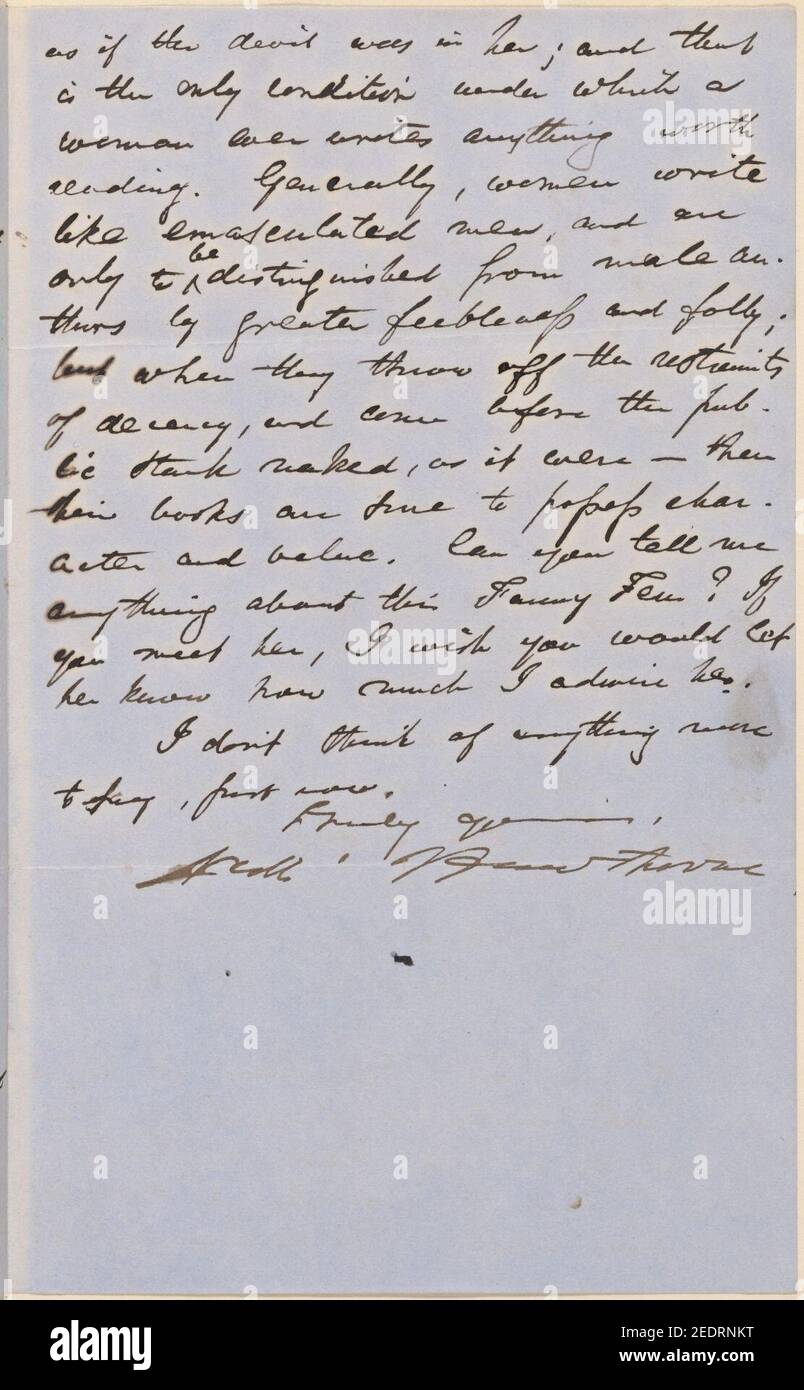 as if the devil was in her; and that
is the only condition under which a
woman ever writes anything worth
reading. Generally, women write
like emasculated men, and are
only to be distinguished from male au-
thors by greater feebleness and folly;
but when they throw off the restraints
of decency, and come before the pub-
lic stark naked, as it were — then
their books are sure to possess char-
acter and value. Can you tell me
anything about this Fanny Fern? If
you meet her, I wish you would let
her know how much I admire her.
I don't think of anything more
to say, just now.
Truly yours,
Nath' Hawthorne
alamy
Image ID: 2EDRNKT
www.alamy.com